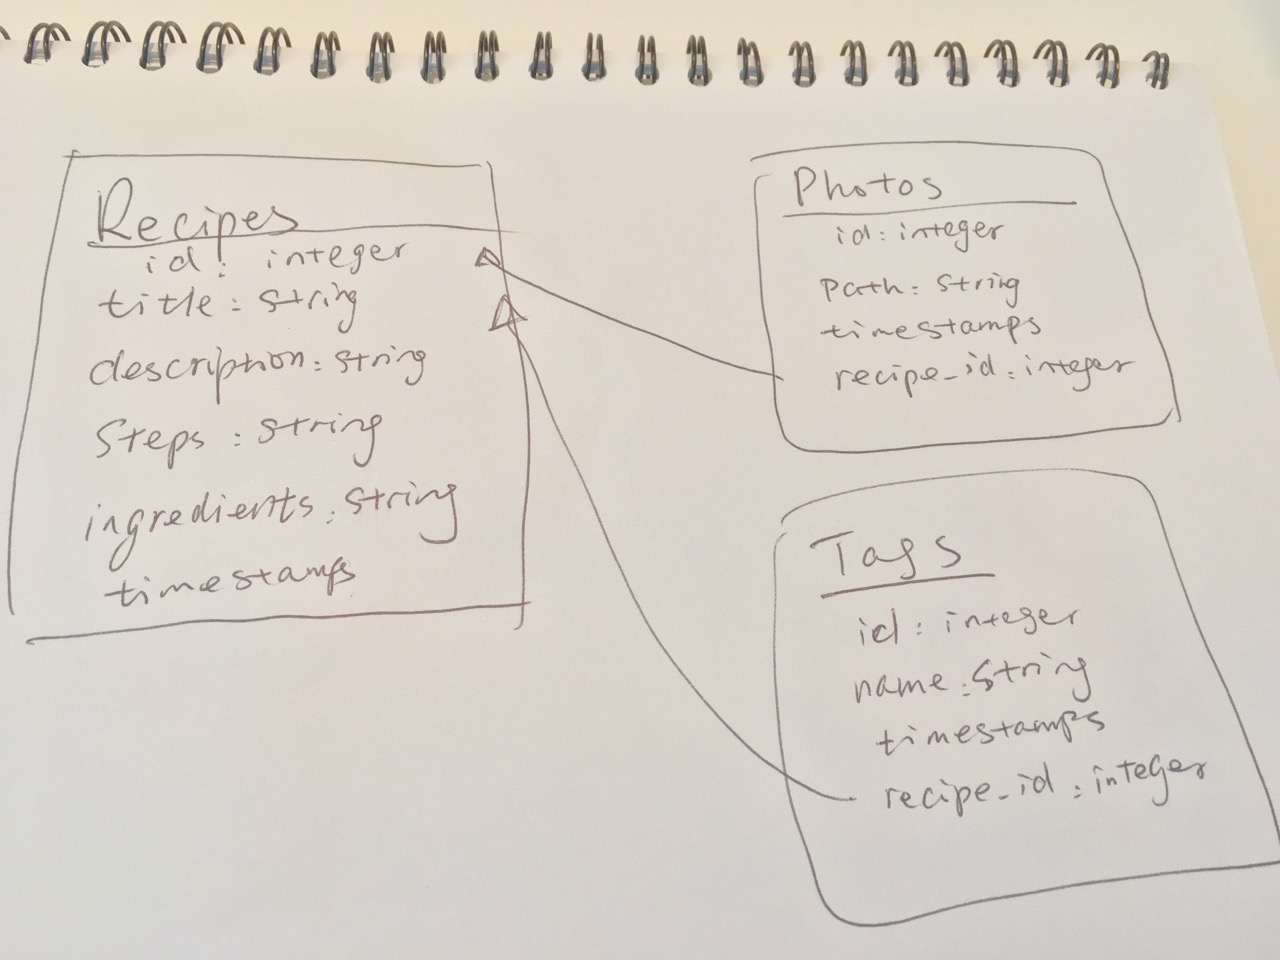 Recipes
id: integer
title: string
description: string
Steps: string
ingredients: string
timestamps
Photos
id: integer
path: string
timestamps
recipe_id: integer
Tags
id: integer
name: string
timestamps
recipe_id: integer